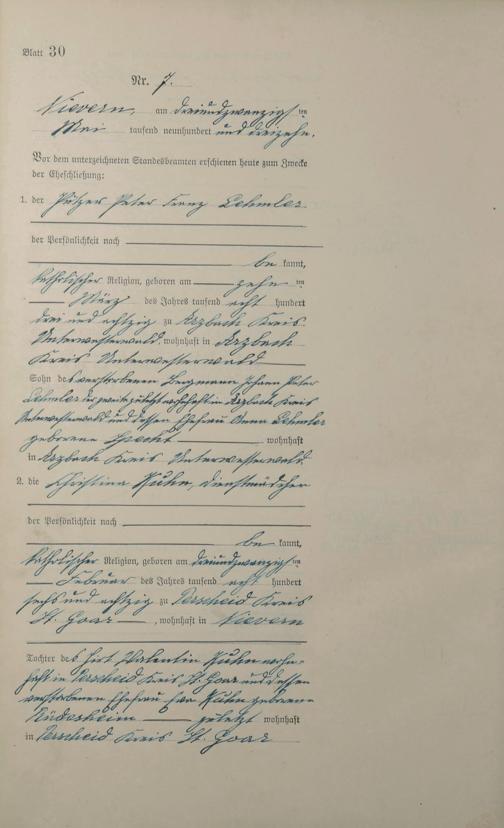 Blatt 30
Nr. 7.
Nievern, am dreiundzwanzigsten
Mai tausend neunhundert und dreizehn.
Vor dem unterzeichneten Standesbeamten erschienen heute zum Zwecke
der Eheschließung:
1. der Peter Franz Lehmler
der Persönlichkeit nach
be kannt,
katholischer Religion, geboren am zehn ten
März des Jahres tausend acht hundert
drei und achtzig zu Arzbach Kreis
Unterwesterwald, wohnhaft in Arzbach
Kreis Unterwesterwald
Sohn des verstorbenen Bergmann Johann Peter
Lehmler der zuletzt wohnhaft in Arzbach Kreis
Unterwesterwald und dessen Ehefrau Anna Lehmler
geborene wohnhaft
in Arzbach Kreis Unterwesterwald.
2. die Christina Kuhn, Dienstmädchen
der Persönlichkeit nach
be kannt,
katholischer Religion, geboren am dreiundzwanzigsten
Februar des Jahres tausend acht hundert
sechs und achtzig zu Perscheid Kreis
St. Goar, wohnhaft in Nievern
Tochter des Hirt Valentin Kuhn wohn-
haft in Perscheid Kreis St. Goar und dessen
verstorbenen Ehefrau Eva Kuhn geborene
Rüdesheim zuletzt wohnhaft
in Perscheid Kreis St. Goar